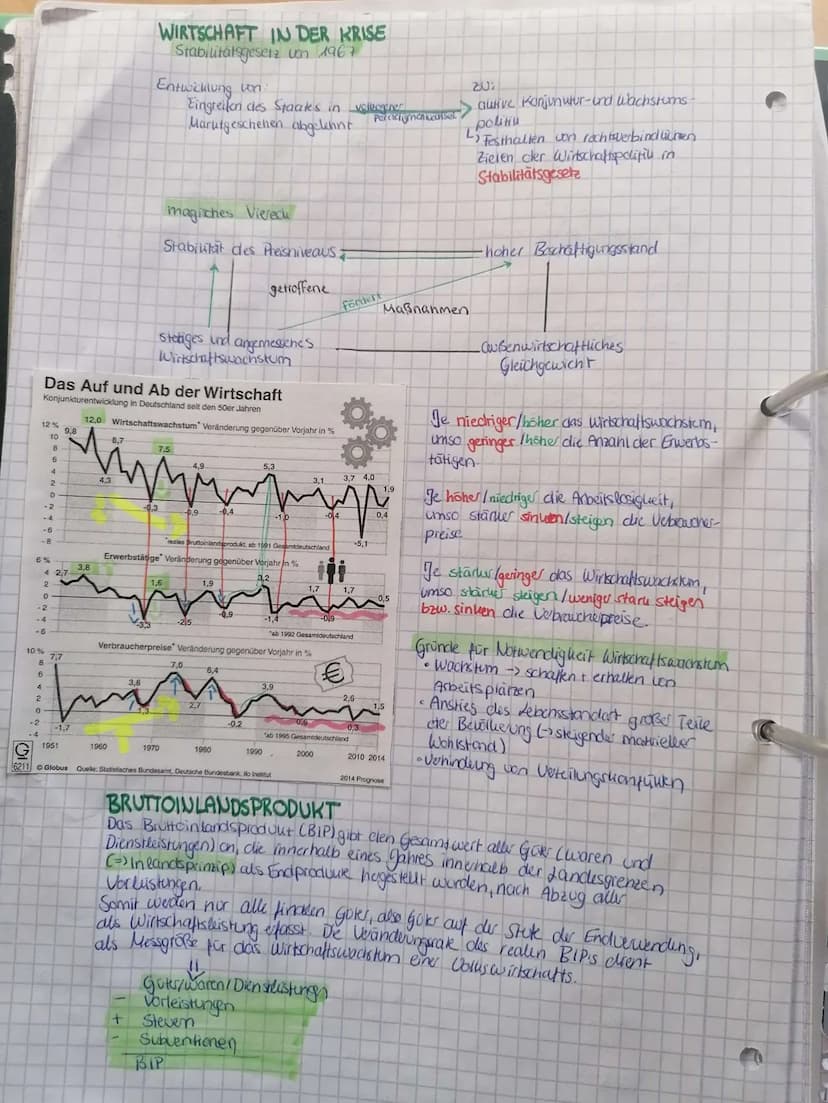 WIRTSCHAFT IN DER KRISE
Stabilitätsgesetz von 1967
Entwicklung von:
Eingreifen des Staates in
Marktgeschehen abgelehnt
vollzogener
Paradigmenwechsel
zu:
aktive Konjunktur- und Wachstums-
politik
↳ Festhalten von rechtsverbindlichen
Zielen der Wirtschaftspolitik in
Stabilitätsgesetz
magisches Viereck
Stabilität des Preisniveaus
hoher Beschäftigungsstand
getroffene
fördert
Maßnahmen
stetiges und angemessenes
Wirtschaftswachstum
außenwirtschaftliches
Gleichgewicht
Das Auf und Ab der Wirtschaft
Konjunkturentwicklung in Deutschland seit den 50er Jahren
Wirtschaftswachstum* Veränderung gegenüber Vorjahr in %
12 %
10
8
6
4
2
0
-2
-4
-6
-8
9,8
12,0
4,3
8,7
7,5
-0,3
4,9
-0,9
-0,4
5,3
-1,0
3,1
-0,4
3,7
-5,1
4,0
0,4
1,9
*reales Bruttoinlandsprodukt, ab 1991 Gesamtdeutschland
Erwerbstätige* Veränderung gegenüber Vorjahr in %
6 %
4
2
0
-2
-4
-6
2,7
3,8
-3,3
1,6
-2,5
1,9
-0,9
3,2
-1,4
1,7
-0,9
1,7
0,5
*ab 1992 Gesamtdeutschland
Verbraucherpreise* Veränderung gegenüber Vorjahr in %
10 %
8
6
4
2
0
-2
-4
7,7
-1,7
3,6
1,3
7,0
2,7
6,4
-0,2
3,9
0,6
2,6
0,3
1,5
€
*ab 1995 Gesamtdeutschland
1951 1960 1970 1980 1990 2000 2010 2014
G
6211
© Globus Quelle: Statistisches Bundesamt, Deutsche Bundesbank, ifo Institut
2014 Prognose
Je niedriger/höher das Wirtschaftswachstum,
umso geringer/höher die Anzahl der Erwerbs-
tätigen.
Je höher/niedriger die Arbeitslosigkeit,
umso stärker sinken/steigen die Verbraucher-
preise.
Je stärker/geringer das Wirtschaftswachstum,
umso stärker steigen/weniger stark steigen
bzw. sinken die Verbraucherpreise.
Gründe für Notwendigkeit Wirtschaftswachstum
• Wachstum → schaffen + erhalten von
Arbeitsplätzen
• Anstieg des Lebensstandart großer Teile
der Bevölkerung (→ steigender materieller
Wohlstand)
• Verhindung von Verteilungskonflikten
BRUTTOINLANDSPRODUKT
Das Bruttoinlandsprodukt (BIP) gibt den Gesamtwert aller Güter (Waren und
Dienstleistungen) an, die innerhalb eines Jahres innerhalb der Landesgrenzen
(=> Inlandsprinzip) als Endprodukte hergestellt wurden, nach Abzug aller
Vorleistungen.
Somit werden nur alle finalen Güter, also Güter auf der Stufe der Endverwendung,
als Wirtschaftsleistung erfasst. Die Veränderungsrate des realen BIPs dient
als Messgröße für das Wirtschaftswachstum einer Volkswirtschafts.
⇓
Güter/Waren/Dienstleistungen
- Vorleistungen
+ Steuern
- Subventionen
BIP